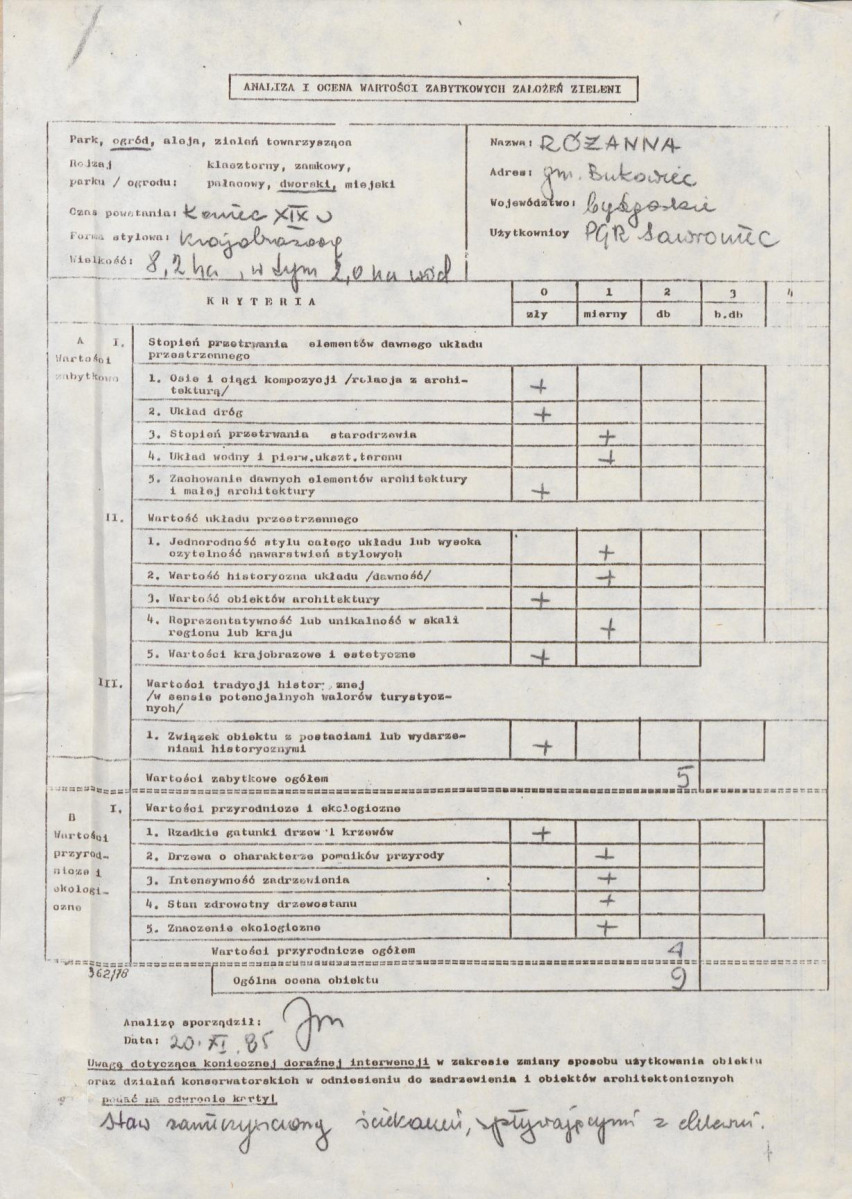 ANALIZA I OCENA WARTOŚCI ZABYTKOWYCH ZAŁOŻEŃ ZIELENI
Park, ogród, aleja, zieleń towarzysząca
Rodzaj parku / ogrodu: klasztorny, zamkowy,
pałacowy, dworski, miejski
Czas powstania: koniec XIX w
Forma stylowa: krajobrazowy
Wielkość: 8,2 ha, w tym 2,0 ha wód
Nazwa: RÓŻANNA
Adres: gm. Bukowiec
Województwo: bydgoskie
Użytkownicy PGR Gawroniec
KRYTERIA 0 1 2 3 4
zły mierny db b.db
A Wartości zabytkowe
I. Stopień przetrwania elementów dawnego układu
przestrzennego
1. Osie i ciągi kompozycji /relacja z archi-
tekturą/ +
2. Układ dróg +
3. Stopień przetrwania starodrzewia +
4. Układ wodny i pierw.ukszt.terenu +
5. Zachowanie dawnych elementów architektury
i małej architektury +
II. Wartość układu przestrzennego
1. Jednorodność stylu całego układu lub wysoka
czytelność nawarstwień stylowych +
2. Wartość historyczna układu /dawność/ +
3. Wartość obiektów architektury +
4. Reprezentatywność lub unikalność w skali
regionu lub kraju +
5. Wartości krajobrazowe i estetyczne +
III. Wartości tradycji history znej
/w sensie potencjalnych walorów turystycz-
nych/
1. Związek obiektu z postaciami lub wydarze-
niami historycznymi +
Wartości zabytkowe ogółem 5
B Wartości przyrod-
nicze i
ekologi-
czne
I. Wartości przyrodnicze i ekologiczne
1. Rzadkie gatunki drzew i krzewów +
2. Drzewa o charakterze pomników przyrody +
3. Intensywność zadrzewienia +
4. Stan zdrowotny drzewostanu +
5. Znaczenie ekologiczne +
Wartości przyrodnicze ogółem 4
362/78
Ogólna ocena obiektu 9
Analizę sporządził:
Data: 20.XI.85
Uwagę dotycząca koniecznej doraźnej interwencji w zakresie zmiany sposobu użytkowania obiektu
oraz działań konserwatorskich w odniesieniu do zadrzewienia i obiektów architektonicznych
podać na odwrocie karty!
Staw zanieczyszczony ściekami, spływającymi z chlewni.